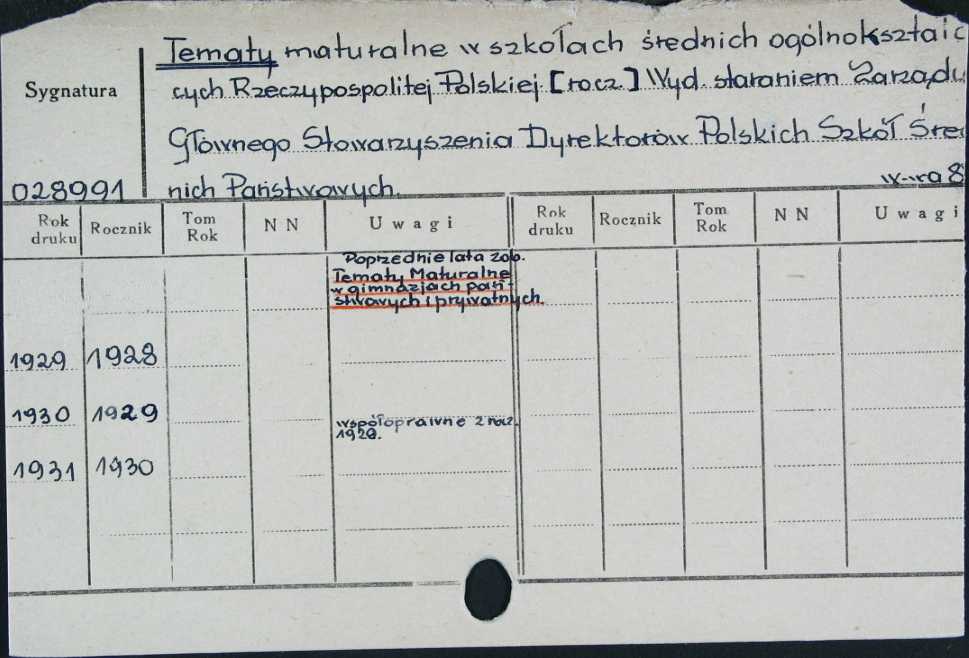 Tematy maturalne w szkołach średnich ogólnokształc
Sygnatura
cych Rzeczypospolitej Polskiej [rocz.] Wyd. staraniem Zarządu
Głównego Stowarzyszenia Dyrektorów Polskich Szkół Śred
028991
nich Państwowych.
w-wa 8°
Rok druku Rocznik Tom Rok N N Uwagi Rok druku Rocznik Tom Rok N N Uwagi
Poprzednie lata zob.
Tematy Maturalne
w gimnazjach pań-
stwowych i prywatnych.
1929 1928
1930 1929
współoprawne z rocz.
1928.
1931 1930